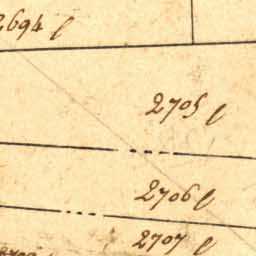 2694 l
2705 l
2706 l
2707 l